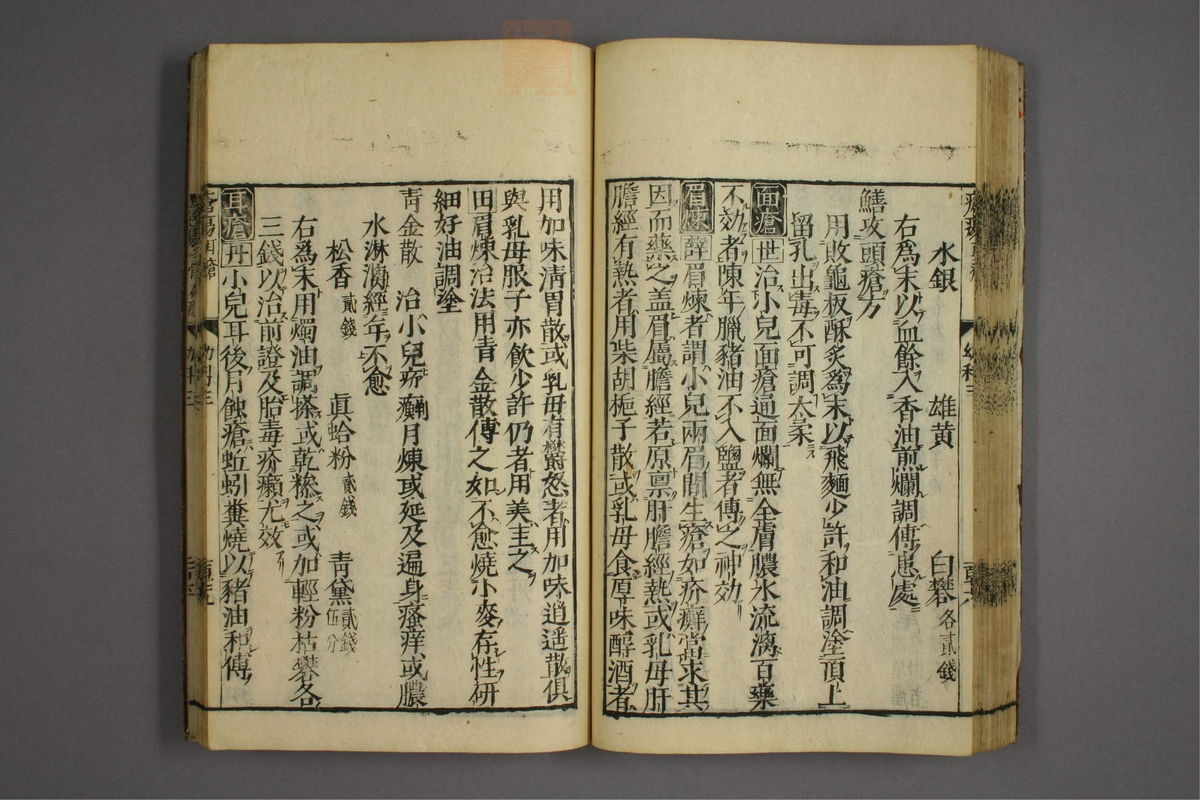 水銀 雄黄 白礬各貳錢
右爲末以血餘入香油煎爛調傅患處
鱔攻頭瘡方
用敗龜板酥炙爲末以飛麵少許和油調塗頂上
留乳出毒不可調太柔
面瘡 世 治小兒面瘡通面爛無全膚膿水流漓百藥
不効者陳年臘豬油不入鹽者傅之神効
眉煉 薛 眉煉者謂小兒兩眉間生瘡如疥癬當求其
因而藥之盖眉屬膽經若原禀肝膽經熱或乳母肝
膽經有熱者用柴胡梔子散或乳母食厚味醇酒者
用加味淸胃散或乳母有欝怒者用加味逍遥散俱
與乳母服子亦飲少許仍者用美主之
田 眉煉治法用青金散傅之如不愈燒小麥存性研
細好油調塗
靑金散 治小兒疥癩月煉或延及遍身瘙痒或膿
水淋漓經年不愈
松香貳錢 眞蛤粉貳錢 靑黛貳錢伍分
右爲末用燭油調搽或乾糝之或加輕粉枯礬各
三錢以治前證及胎毒疥癩尤效
耳瘡 丹 小兒耳後月蝕瘡蚯蚓糞燒以豬油和傅